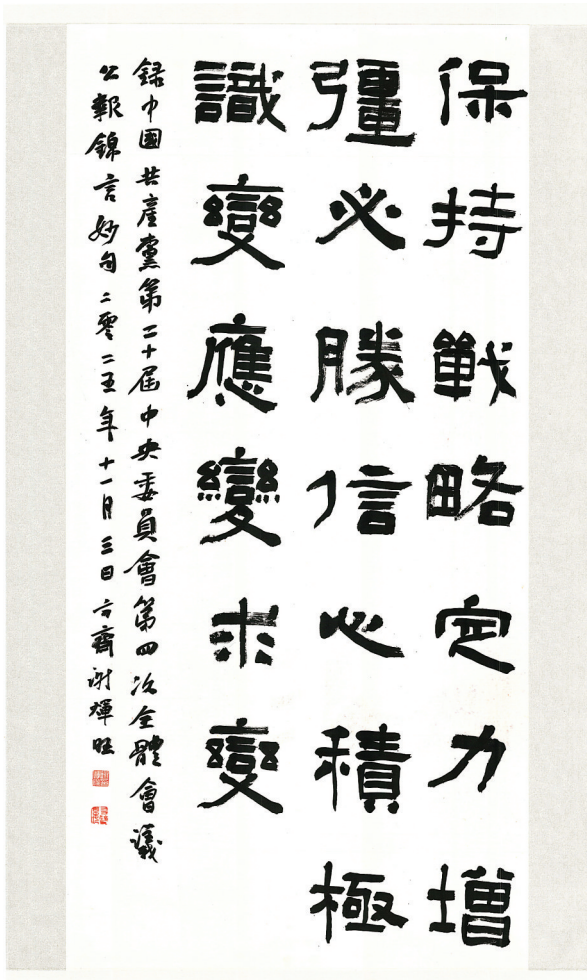 保持戰略定力增
彊必勝信心積極
識變應變求變
録中國共產黨第二十届中央委員會第四次全體會議
公報錦言妙句二零二五年十一月三日方齊謝輝旺